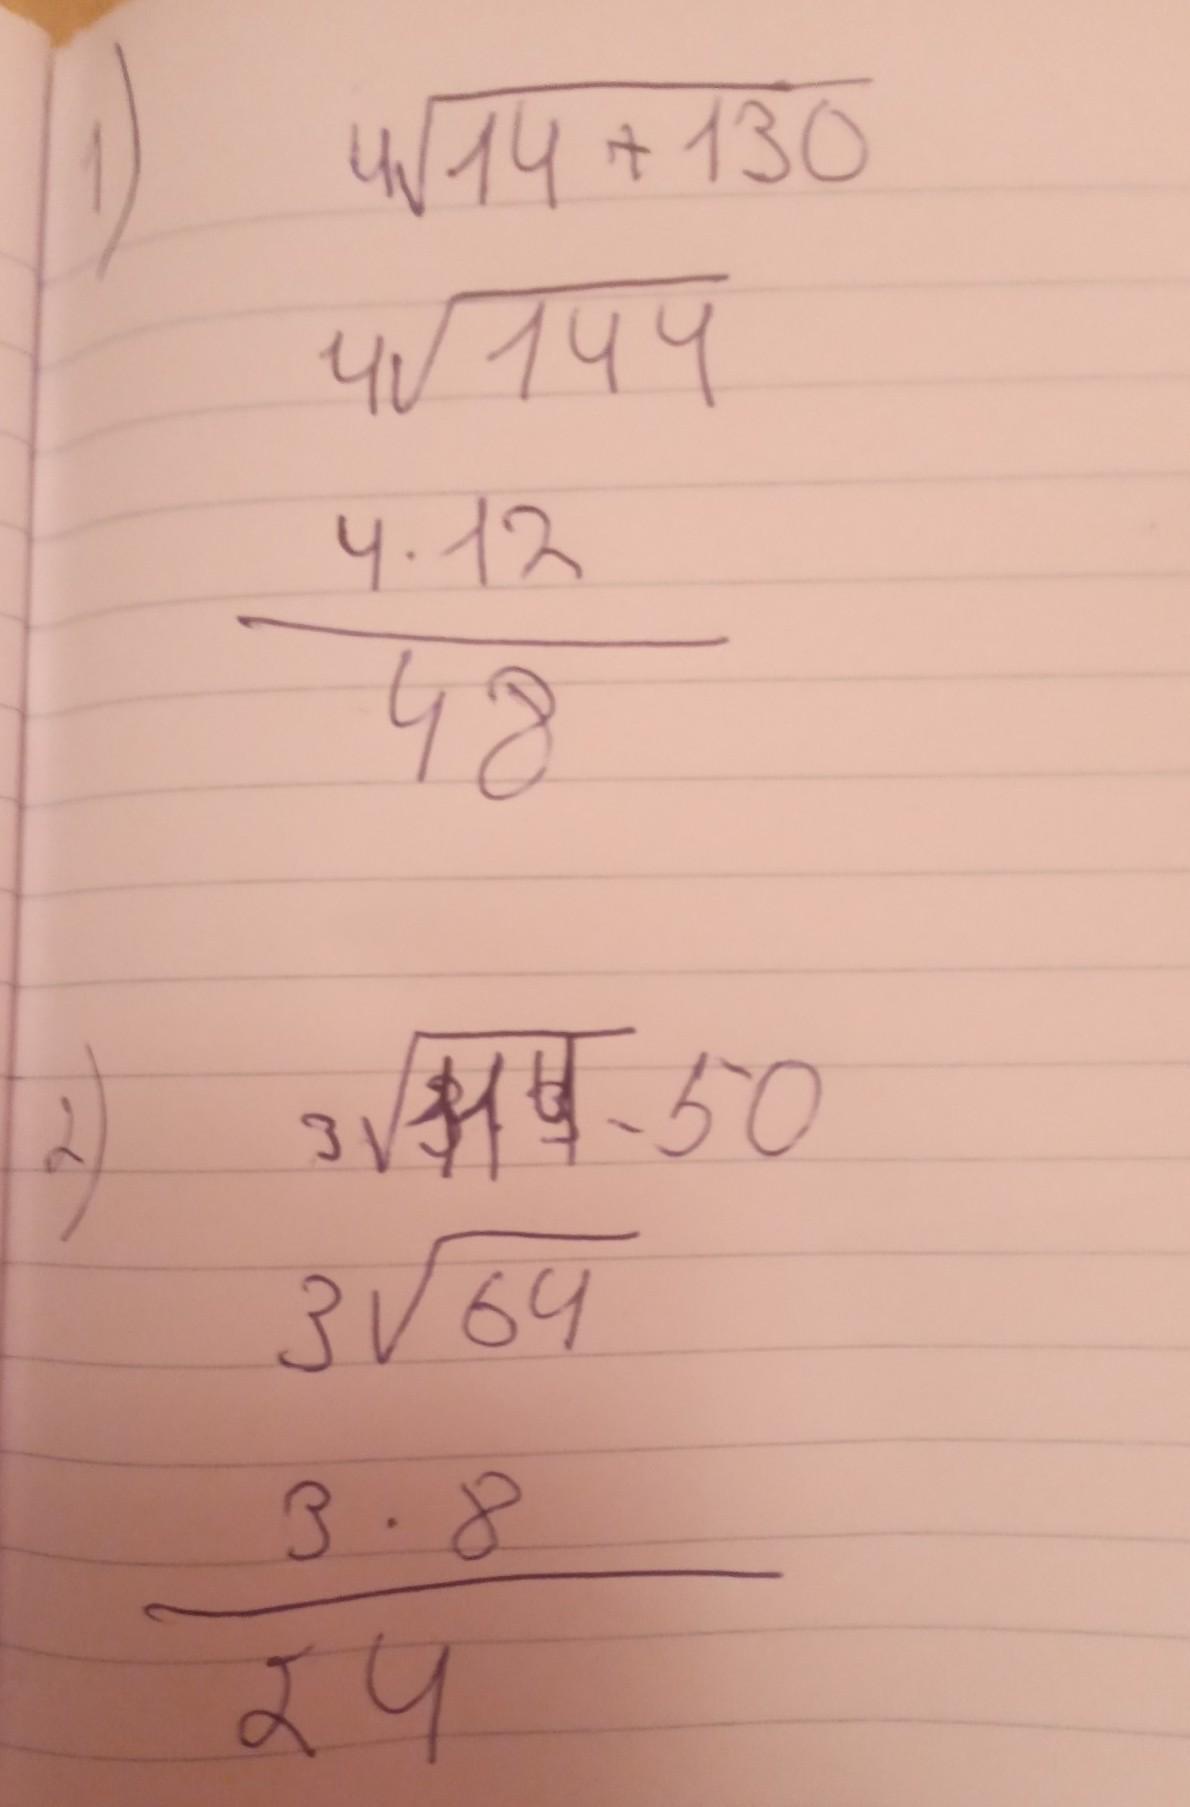 1) 4√14 + 130
4√144
4 · 12
48
2) 3√114 - 50
3√64
3 · 8
24